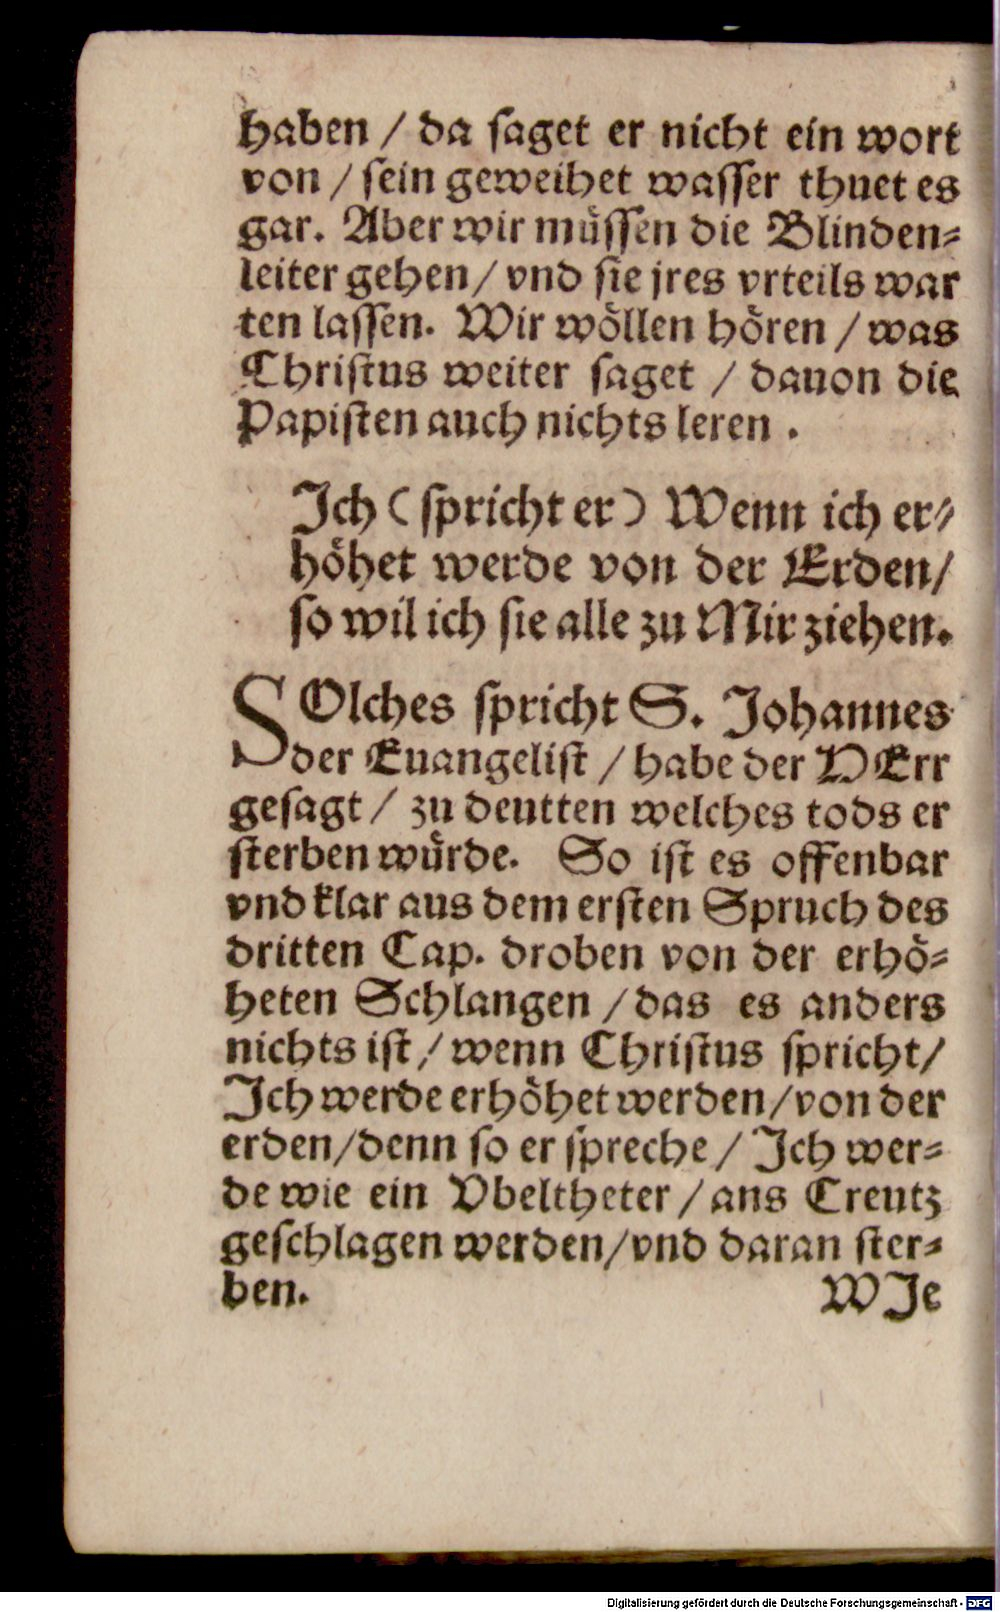 haben / da saget er nicht ein wort
von / sein geweihet wasser thuet es
gar. Aber wir müssen die Blinden-
leiter gehen / vnd sie jres vrteils war
ten lassen. Wir wöllen hören / was
Christus weiter saget / dauon die
Papisten auch nichts leren .
Ich ( spricht er ) Wenn ich er-
höhet werde von der Erden /
so wil ich sie alle zu Mir ziehen.
SOlches spricht S. Johannes
der Euangelist / habe der HErr
gesagt / zu deutten welches tods er
sterben würde. So ist es offenbar
vnd klar aus dem ersten Spruch des
dritten Cap. droben von der erhö-
heten Schlangen / das es anders
nichts ist / wenn Christus spricht /
Ich werde erhöhet werden / von der
erden / denn so er spreche / Ich wer-
de wie ein Vbeltheter / ans Creutz
geschlagen werden / vnd daran ster-
ben. WIe
Digitalisierung gefördert durch die Deutsche Forschungsgemeinschaft - DFG